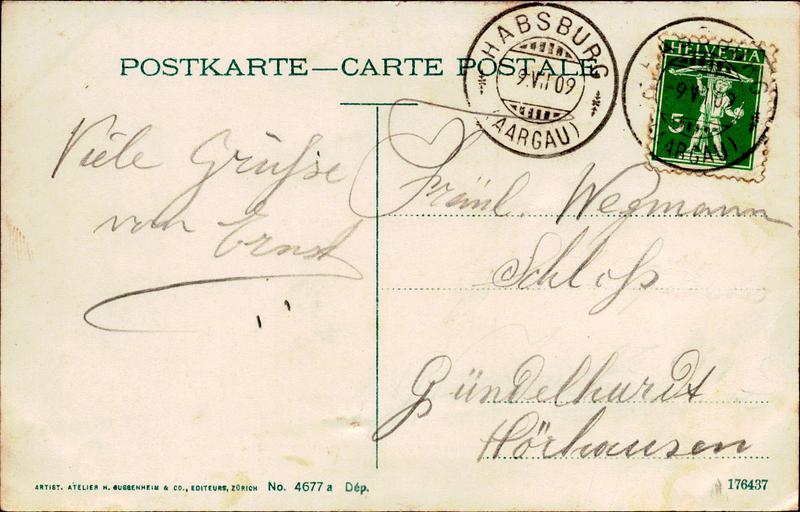 POSTKARTE—CARTE POSTALE
HABSBURG
9.VII 09
(AARGAU)
HELVETIA
9.VII 09
5
(AARGAU)
Viele Grüsse
von Ernst
Fräul. Wegmann
Schloss
Gündelhardt
Hörhausen
ARTIST. ATELIER H. GUGGENHEIM & CO., EDITEURS, ZÜRICH No. 4677 a Dép.
176437